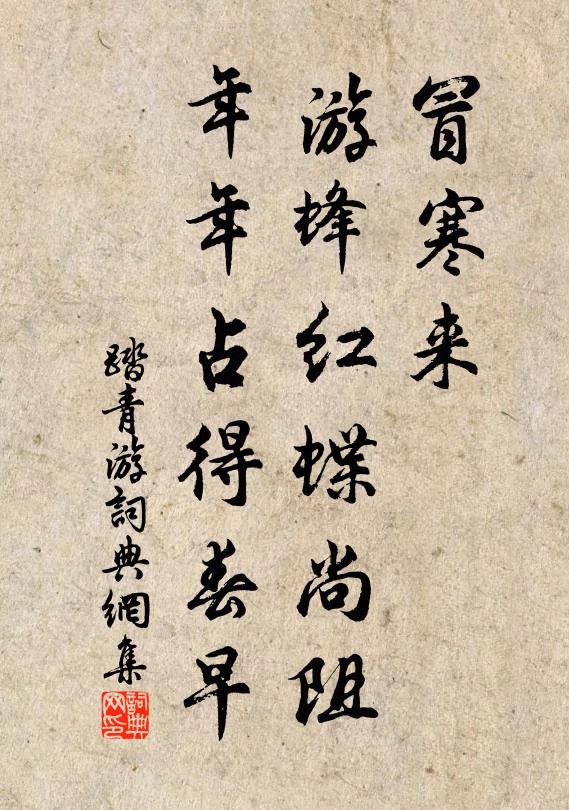 冒寒来
游蜂红蝶尚阻
年年占得春早
踏青游詞典網集
詞典
网印